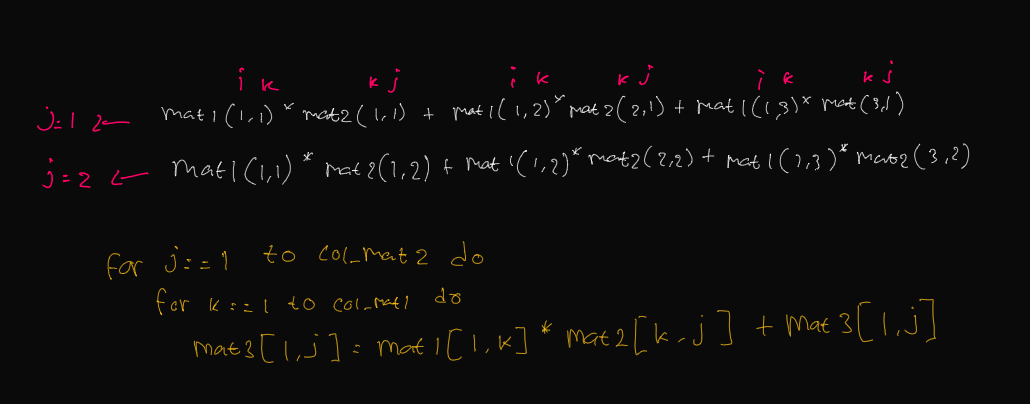 i k k j i k k j i k k j
j=1 ← mat1(1,1) * mat2(1,1) + mat1(1,2)* mat2(2,1) + mat1(1,3)* mat(3,1)
j=2 ← mat1(1,1) * mat2(1,2) + mat1(1,2)* mat2(2,2) + mat1(1,3)* mat2(3,2)
for j:=1 to col_mat2 do
for k:=1 to col_mat1 do
mat3[1,j] = mat1[1,k] * mat2[k,j] + mat3[1,j]